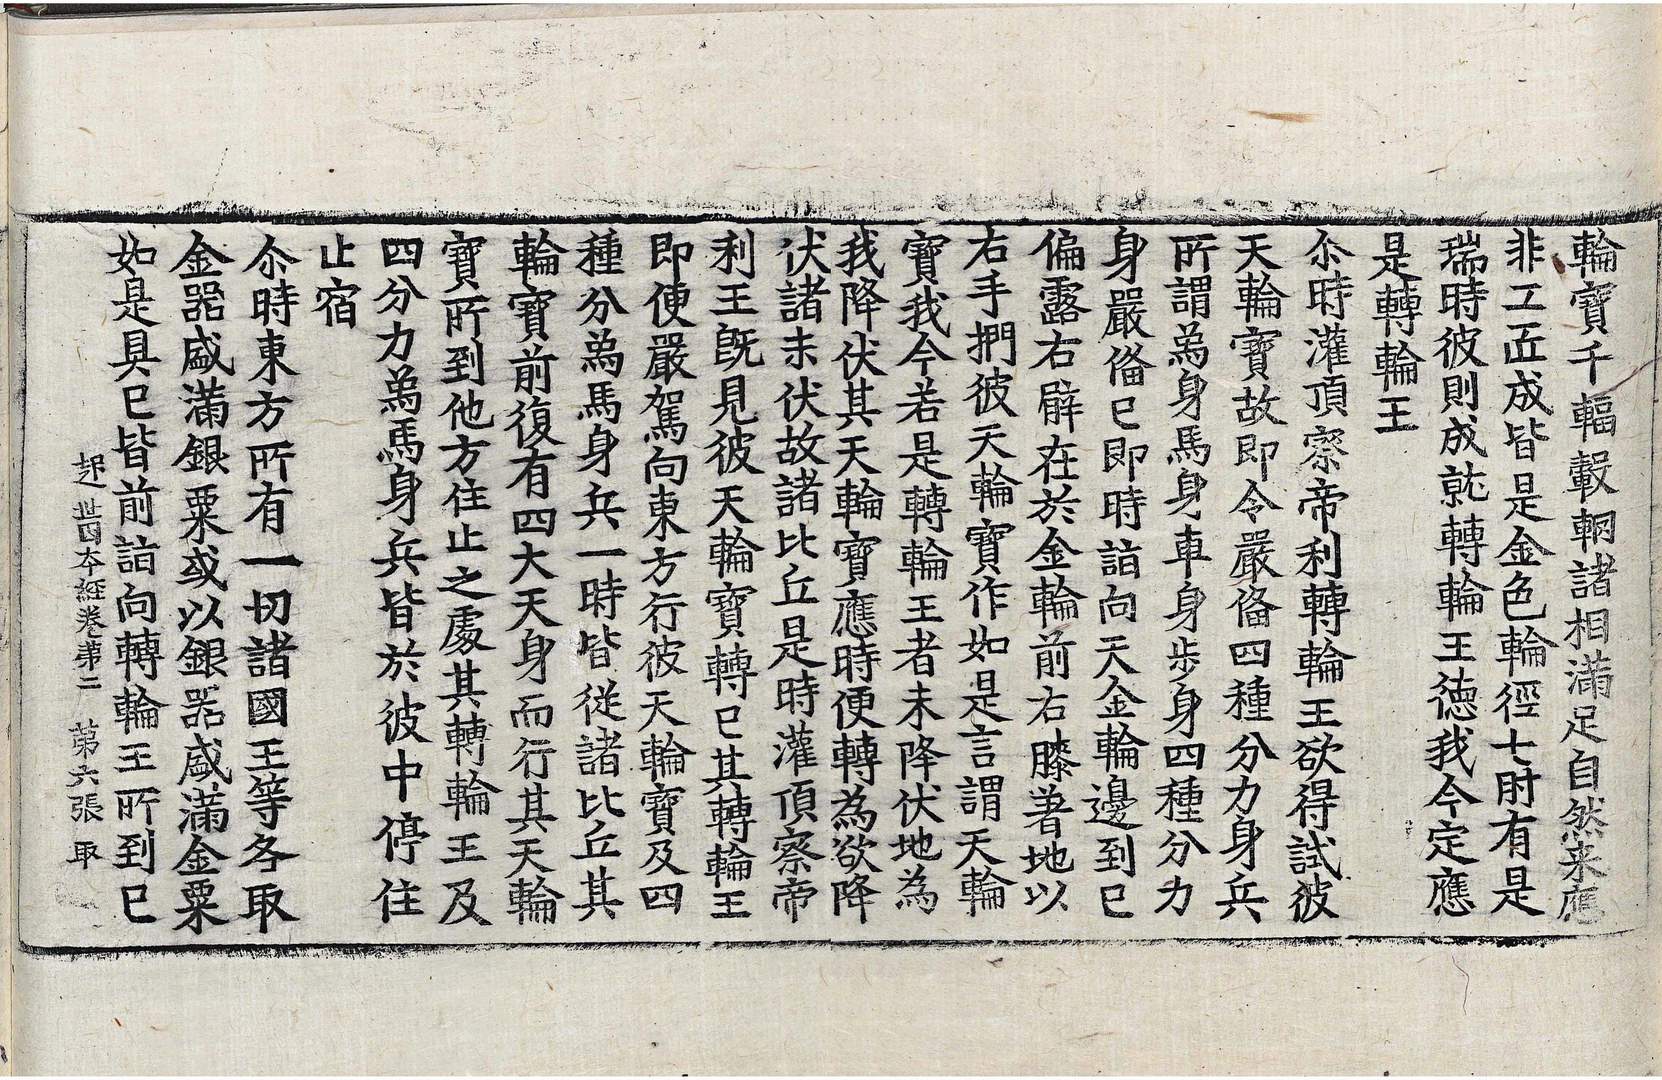 輪寶千輻轂輞諸相滿足自然来應
非工匠成皆是金色輪徑七肘有是
瑞時彼則成就轉輪王德我今定應
是轉輪王
尒時灌頂察帝利轉輪王欲得試彼
天輪寶故即令嚴俻四種分力身兵
所謂為身馬身車身歩身四種分力
身嚴俻已即時詣向天金輪邊到已
偏露右臂在於金輪前右膝著地以
右手捫彼天輪寶作如是言謂天輪
寶我今若是轉輪王者未降伏地為
我降伏其天輪寶應時便轉為欲降
伏諸未伏故諸比丘是時灌頂察帝
利王既見彼天輪寶轉已其轉輪王
即便嚴駕向東方行彼天輪寶及四
種分為馬身兵一時皆從諸比丘其
輪寶前復有四大天身而行其天輪
寶所到他方住止之處其轉輪王及
四分力為馬身兵皆於彼中停住
止宿
尒時東方所有一切諸國王等各取
金器咸滿銀粟或以銀器咸滿金粟
如是具已皆前詣向轉輪王所到已
起世因本經卷第二 第六張 取